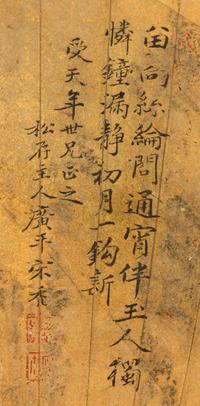 留向絲綸問通宵伴主人獨
憐鐘漏靜初月一鈎新
受天年世兄正之
松存主人廣平宋